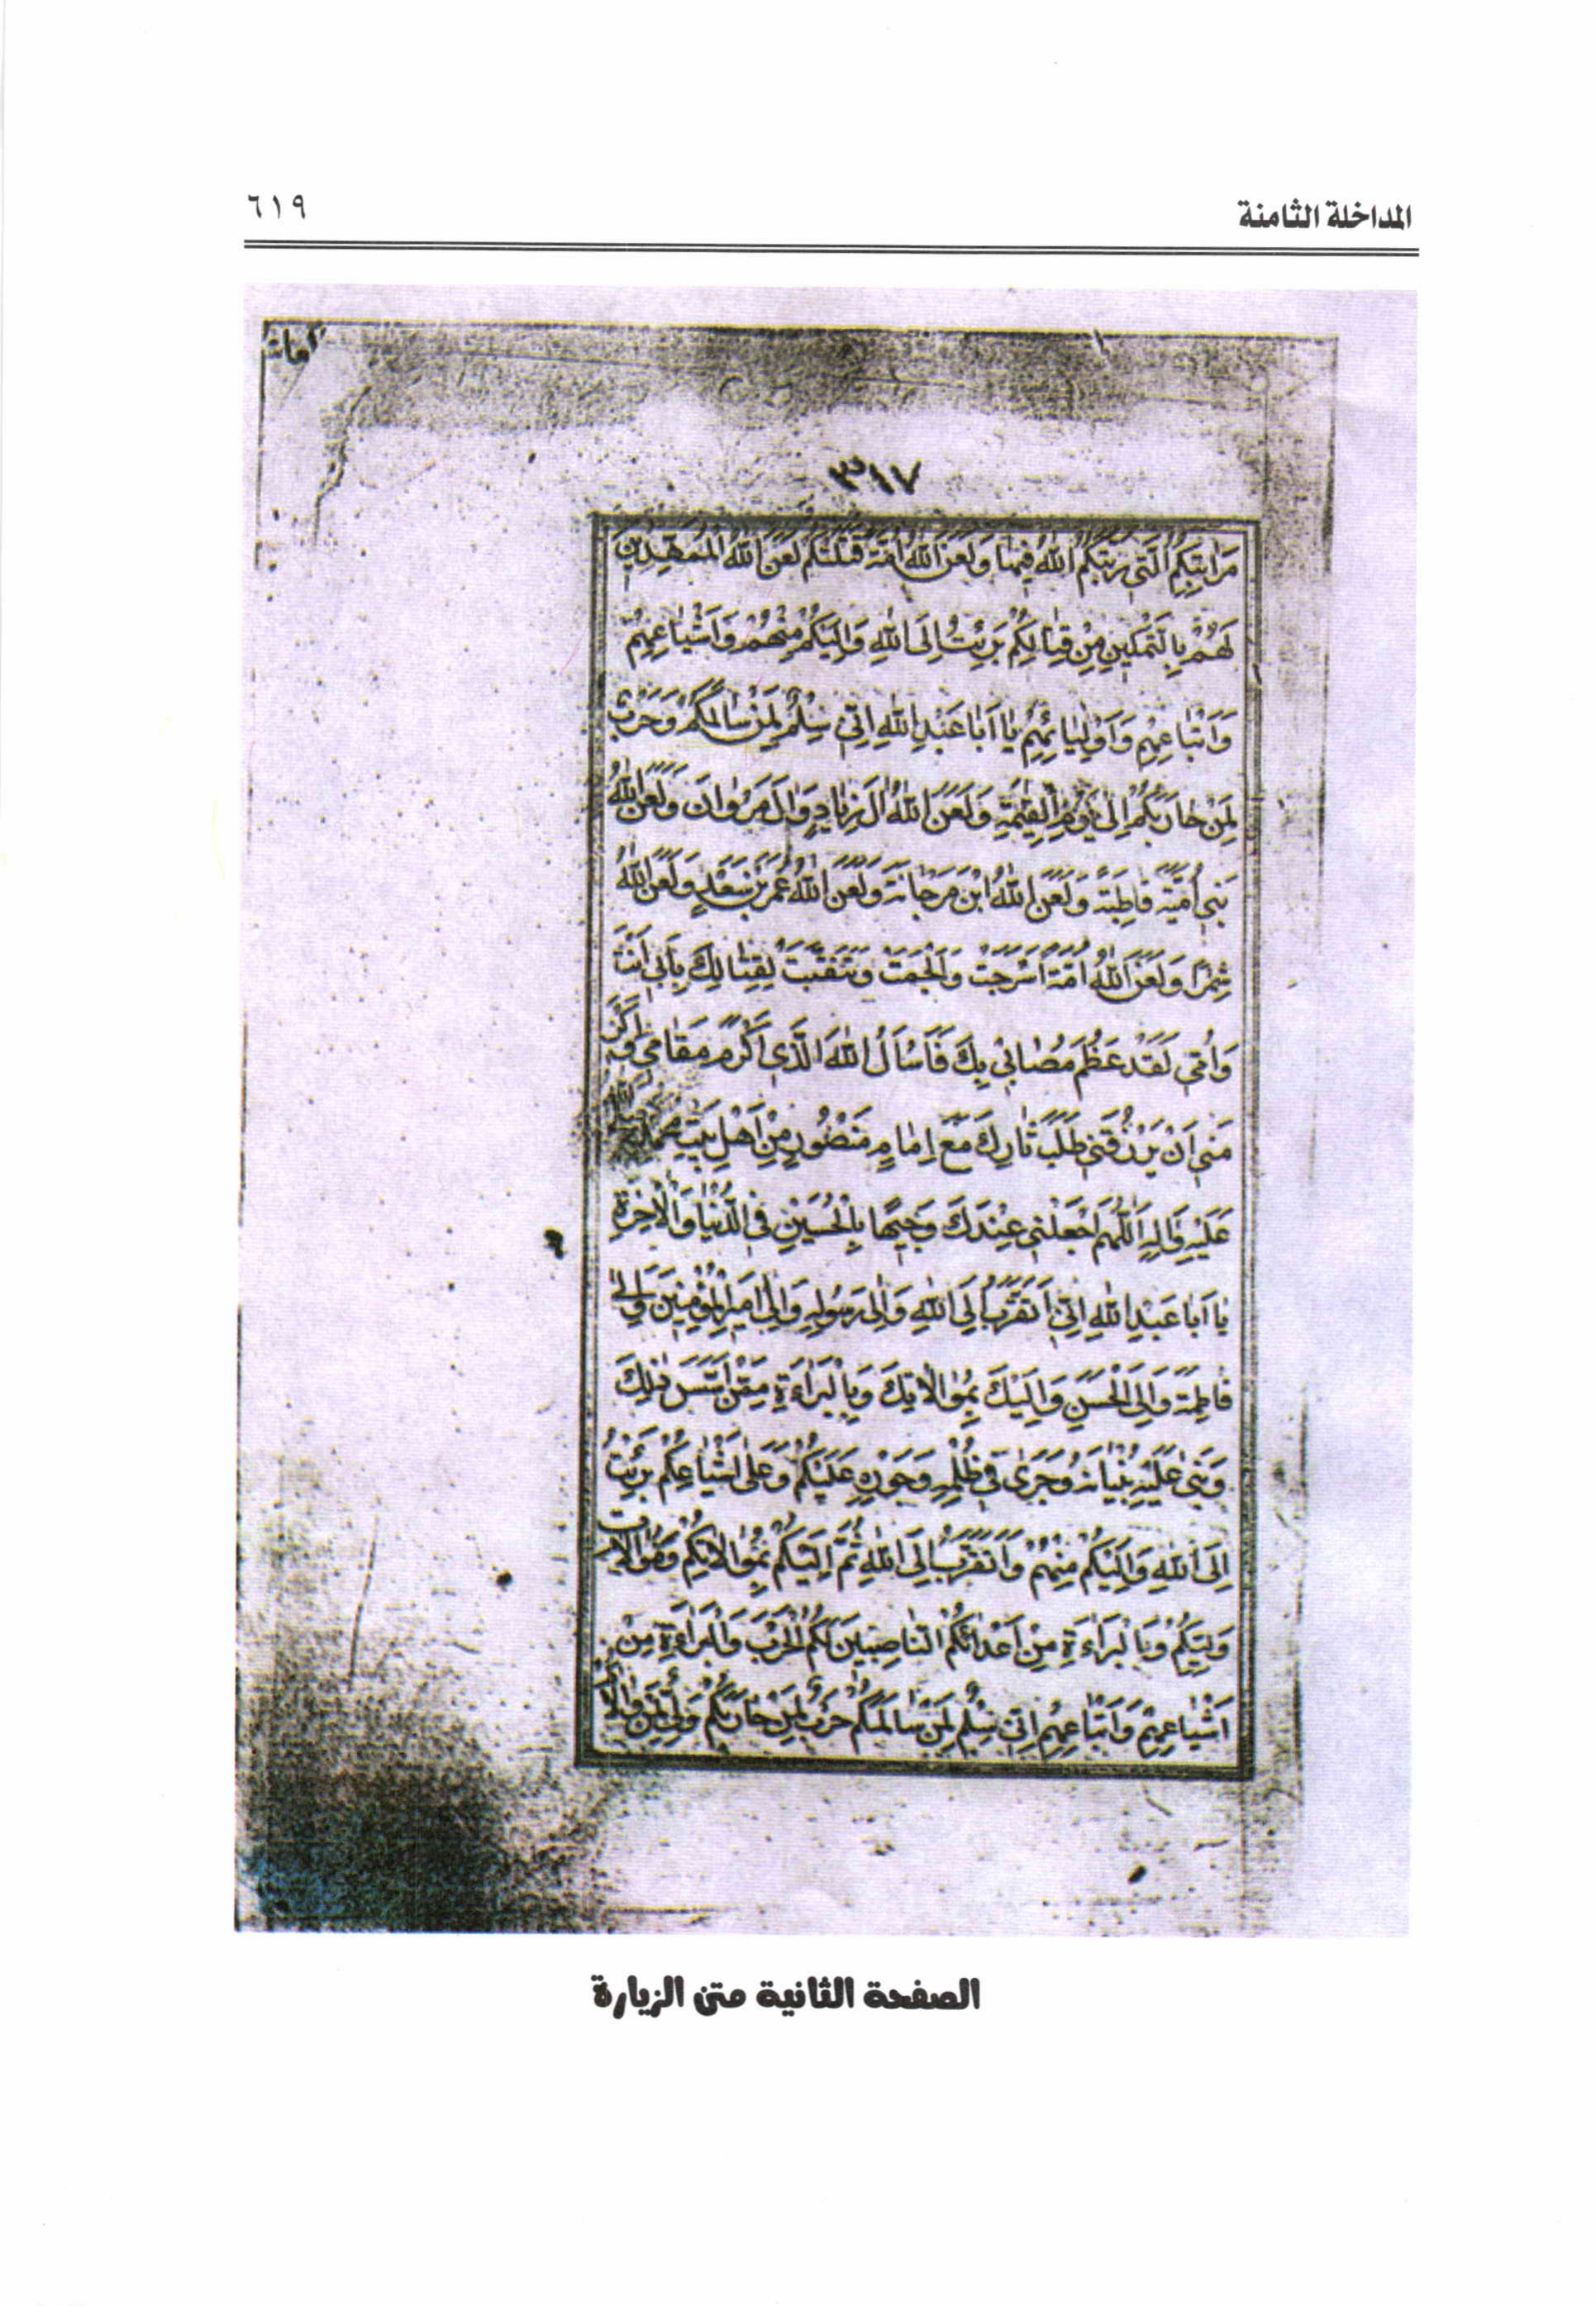 المداخلة الثامنة
٦١٩
٣١٧
مَرَاتِبِكُمُ الَّتِي رَتَّبَكُمُ اللهُ فِيهَا وَلَعَنَ اللهُ اُمَّةً قَتَلَتْكُمْ لَعَنَ اللهُ الْمُمَهِّدِينَ
لَهُمْ بِالتَّمْكِينِ مِنْ قِتَالِكُمْ بَرِئْتُ اِلَى اللهِ وَاِلَيْكُمْ مِنْهُمْ وَاَشْيَاعِهِمْ
وَاَتْبَاعِهِمْ وَاَوْلِيَائِهِمْ يَا اَبَا عَبْدِ اللهِ اِنِّي سِلْمٌ لِمَنْ سَالَمَكُمْ وَحَرْبٌ
لِمَنْ حَارَبَكُمْ اِلَى يَوْمِ الْقِيٰمَةِ وَلَعَنَ اللهُ اٰلَ زِيَادٍ وَاٰلَ مَرْوَانَ وَلَعَنَ اللهُ
بَنِي اُمَيَّةَ قَاطِبَةً وَلَعَنَ اللهُ ابْنَ مَرْجَانَةَ وَلَعَنَ اللهُ عُمَرَ بْنَ سَعْدٍ وَلَعَنَ اللهُ
شِمْرًا وَلَعَنَ اللهُ اُمَّةً اَسْرَجَتْ وَاَلْجَمَتْ وَتَنَقَّبَتْ لِقِتَالِكَ بِاَبِي اَنْتَ
وَاُمِّي لَقَدْ عَظُمَ مُصَابِي بِكَ فَاَسْاَلُ اللهَ الَّذِي اَكْرَمَ مَقَامَكَ وَاَكْرَ
مَنِي اَنْ يَرْزُقَنِي طَلَبَ ثَارِكَ مَعَ اِمَامٍ مَنْصُورٍ مِنْ اَهْلِ بَيْتِ مُحَمَّدٍ صَلَّى اللهُ
عَلَيْهِ وَاٰلِهِ اَللّٰهُمَّ اجْعَلْنِي عِنْدَكَ وَجِيهًا بِالْحُسَيْنِ فِي الدُّنْيَا وَالْاٰخِرَةِ
يَا اَبَا عَبْدِ اللهِ اِنِّي اَتَقَرَّبُ اِلَى اللهِ وَاِلَى رَسُولِهِ وَاِلَى اَمِيرِ الْمُؤْمِنِينَ وَاِلَى
فَاطِمَةَ وَاِلَى الْحَسَنِ وَاِلَيْكَ بِمُوَالَاتِكَ وَبِالْبَرَاءَةِ مِمَّنْ اَسَّسَ ذٰلِكَ
وَبَنَى عَلَيْهِ بُنْيَانَهُ وَجَرَى فِي ظُلْمِهِ وَجَوْرِهِ عَلَيْكُمْ وَعَلَى اَشْيَاعِكُمْ بَرِئْتُ
اِلَى اللهِ وَاِلَيْكُمْ مِنْهُمْ وَاَتَقَرَّبُ اِلَى اللهِ ثُمَّ اِلَيْكُمْ بِمُوَالَاتِكُمْ وَمُوَالَاةِ
وَلِيِّكُمْ وَبِالْبَرَاءَةِ مِنْ اَعْدَائِكُمْ النَّاصِبِينَ لَكُمُ الْحَرْبَ وَالْبَرَاءَةِ مِنْ
اَشْيَاعِهِمْ وَاَتْبَاعِهِمْ اِنِّي سِلْمٌ لِمَنْ سَالَمَكُمْ حَرْبٌ لِمَنْ حَارَبَكُمْ وَلِيٌّ لِمَنْ وَالَاكُمْ
الصفحة الثانية متن الزيارة